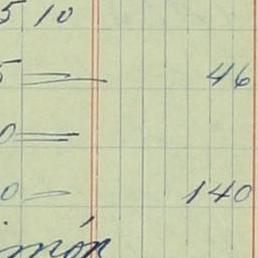 5 10
5 = 46
0 =
0 - 140
món